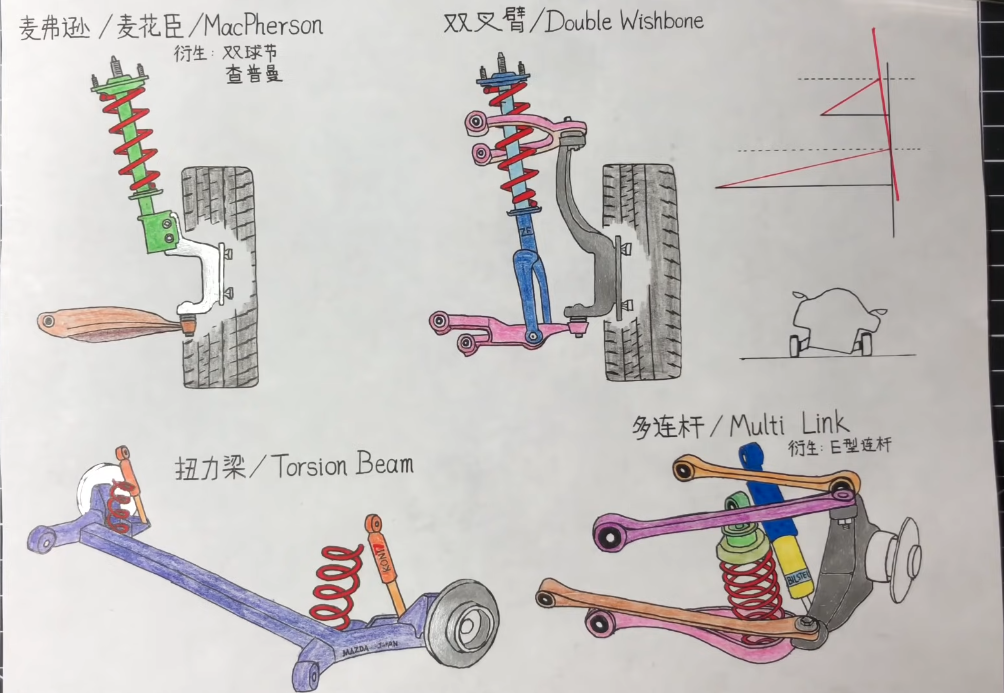 麦弗逊/麦花臣/MacPherson
衍生: 双球节
查普曼
双叉臂/Double Wishbone
ZF
扭力梁/Torsion Beam
KONI
MAZDA
多连杆/Multi Link
衍生: E型连杆
BILSTEI